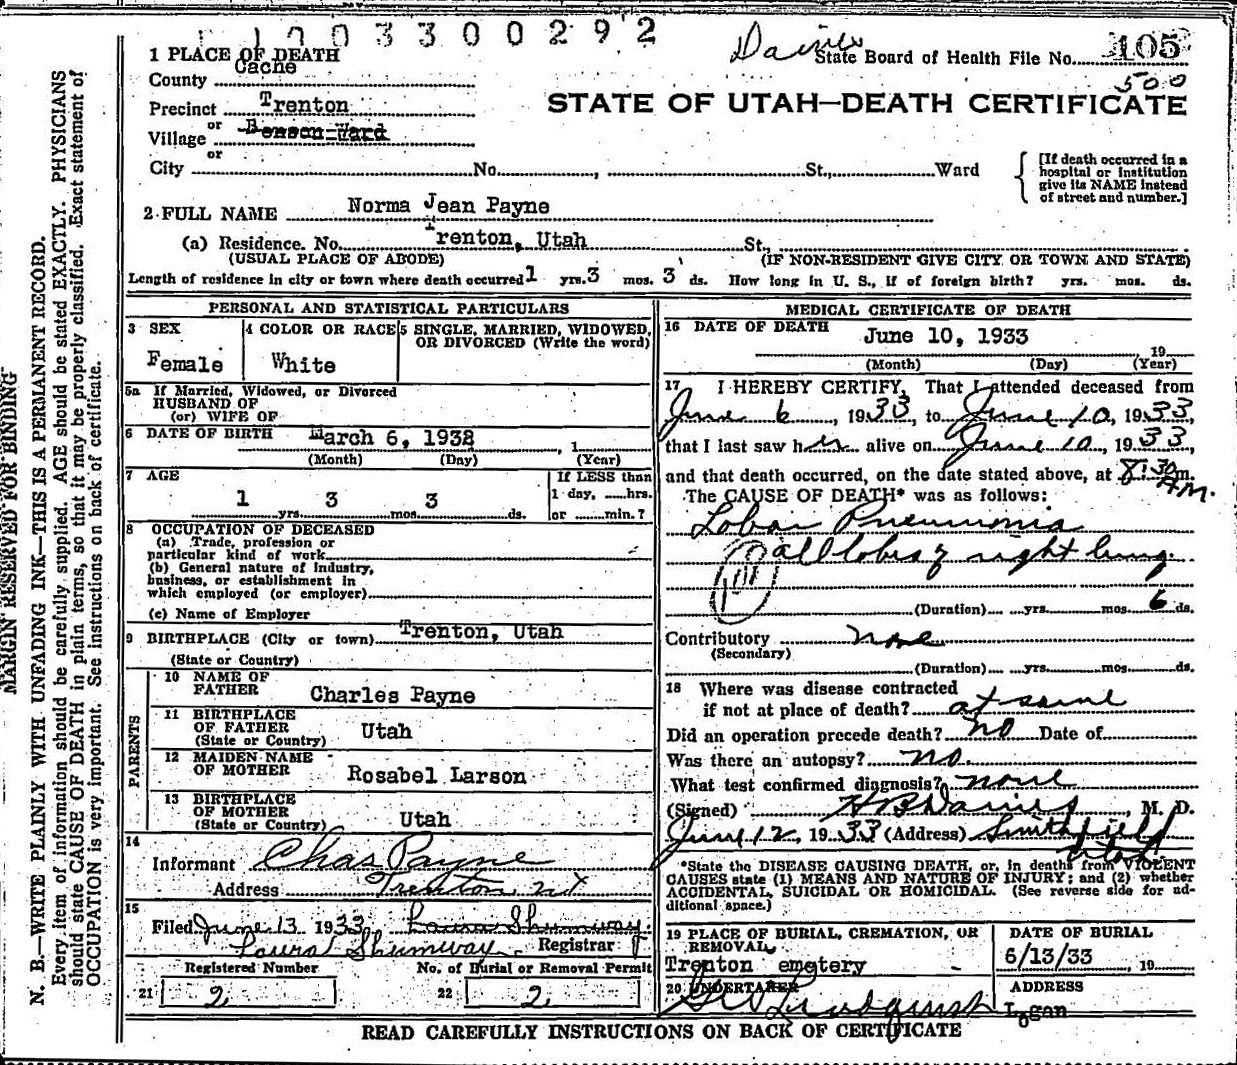 1 0 0 3 3 0 0 2 9 2
Davies State Board of Health File No. 105
500
1 PLACE OF DEATH
County Cache
Precinct Trenton
STATE OF UTAH—DEATH CERTIFICATE
or
Village Benson Ward
or
City No. , St., Ward
[If death occurred in a
hospital or institution
give its NAME instead
of street and number.]
2 FULL NAME Norma Jean Payne
(a) Residence. No. Trenton, Utah St.,
(USUAL PLACE OF ABODE) (IF NON-RESIDENT GIVE CITY OR TOWN AND STATE)
Length of residence in city or town where death occurred 1 yrs. 3 mos. 3 ds. How long in U. S., if of foreign birth? yrs. mos. ds.
PERSONAL AND STATISTICAL PARTICULARS
3 SEX
Female
4 COLOR OR RACE
White
5 SINGLE, MARRIED, WIDOWED,
OR DIVORCED (Write the word)
5a If Married, Widowed, or Divorced
HUSBAND OF
(or) WIFE OF
6 DATE OF BIRTH March 6, 1932 , 1
(Month) (Day) (Year)
7 AGE
1 yrs. 3 mos. 3 ds.
If LESS than
1 day, hrs.
or min.?
8 OCCUPATION OF DECEASED
(a) Trade, profession or
particular kind of work
(b) General nature of industry,
business, or establishment in
which employed (or employer)
(c) Name of Employer
9 BIRTHPLACE (City or town) Trenton, Utah
(State or Country)
PARENTS
10 NAME OF
FATHER Charles Payne
11 BIRTHPLACE
OF FATHER Utah
(State or Country)
12 MAIDEN NAME
OF MOTHER Rosabel Larson
13 BIRTHPLACE
OF MOTHER Utah
(State or Country)
14
Informant Chas Payne
Address Trenton Ut
15
Filed June 13 1933 Laura Shumway
Laura Shumway Registrar
Registered Number No. of Burial or Removal Permit
21 2 22 2
MEDICAL CERTIFICATE OF DEATH
16 DATE OF DEATH June 10, 1933
19
(Month) (Day) (Year)
17 I HEREBY CERTIFY, That I attended deceased from
June 6, 1933, to June 10, 1933,
that I last saw her alive on June 10, 1933,
and that death occurred, on the date stated above, at 8:30 m.
A.M.
The CAUSE OF DEATH* was as follows:
Lobar Pneumonia
all lobes of right lung
(Duration) yrs. mos. 6 ds.
Contributory none
(Secondary)
(Duration) yrs. mos. ds.
18 Where was disease contracted
if not at place of death? at same
Did an operation precede death? no Date of
Was there an autopsy? no.
What test confirmed diagnosis? none
(Signed) H B Davies, M. D.
June 12, 1933 (Address) Smithfield
Utah
*State the DISEASE CAUSING DEATH, or, in deaths from VIOLENT
CAUSES state (1) MEANS AND NATURE OF INJURY; and (2) whether
ACCIDENTAL, SUICIDAL OR HOMICIDAL. (See reverse side for ad-
ditional space.)
19 PLACE OF BURIAL, CREMATION, OR
REMOVAL
Trenton emetery
DATE OF BURIAL
6/13/33, 19
20 UNDERTAKER
Lindquist
ADDRESS
Logan
READ CAREFULLY INSTRUCTIONS ON BACK OF CERTIFICATE
MARGIN RESERVED FOR BINDING
N. B.—WRITE PLAINLY WITH UNFADING INK—THIS IS A PERMANENT RECORD.
Every item of information should be carefully supplied. AGE should be stated EXACTLY. PHYSICIANS
should state CAUSE OF DEATH in plain terms, so that it may be properly classified. Exact statement of
OCCUPATION is very important. See instructions on back of certificate.